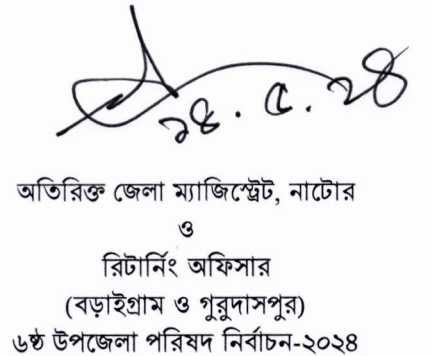 ২৪.৫.২৪
অতিরিক্ত জেলা ম্যাজিস্ট্রেট, নাটোর
ও
রিটার্নিং অফিসার
(বড়াইগ্রাম ও গুরুদাসপুর)
৬ষ্ঠ উপজেলা পরিষদ নির্বাচন-২০২৪